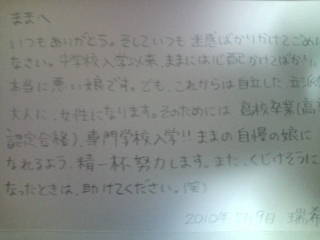 ままへ
いつもありがとう。そしていつも迷惑ばかりかけてごめん
なさい。中学校入学以来、ままには心配かけてばかり、
本当に悪い娘です。でも、これからは自立した
大人に、女性になります。そのためには高校卒業(高
認定合格)、専門学校入学!!ままの自慢の娘に
なれるよう、精一杯努力します。また、くじけそうに
なったときは、助けてください。(笑)
2010年 9日